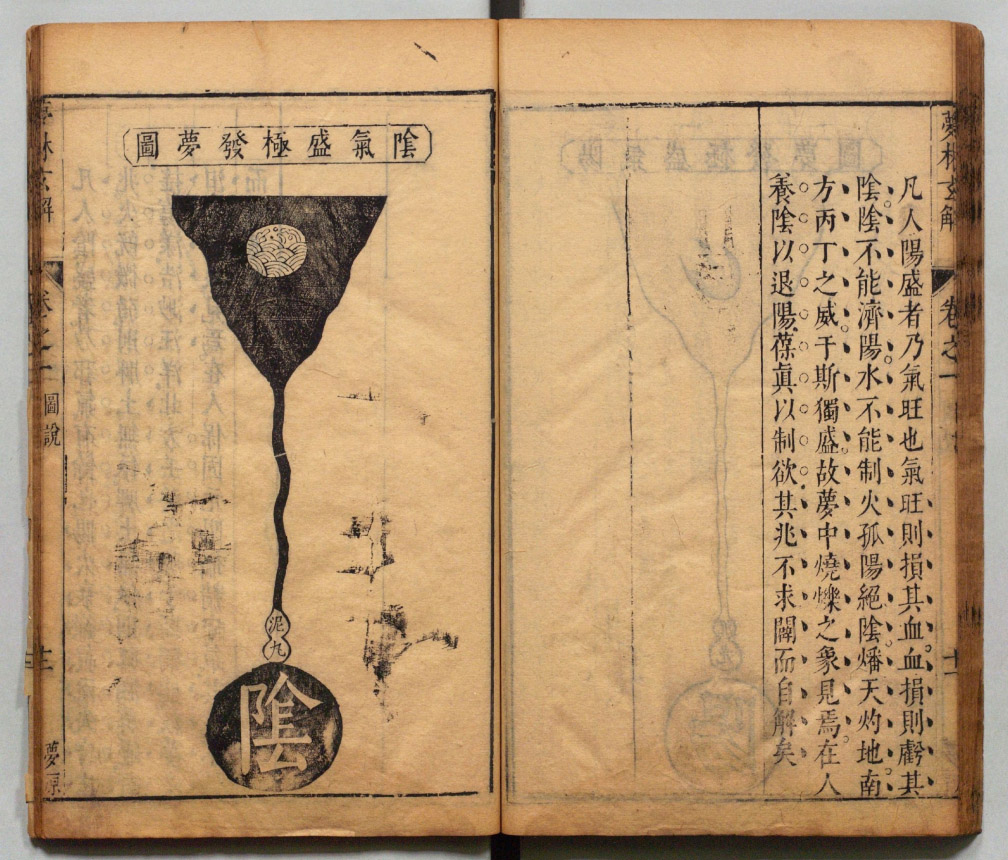 夢林玄解
卷之一
凡人陽盛者乃氣旺也氣旺則損其血血損則虧其
陰陰不能濟陽水不能制火孤陽絕陰燔天灼地南
方丙丁之威于斯獨盛故夢中燒爍之象見焉在人
養陰以退陽葆眞以制欲其兆不求闢而自解矣
陰氣盛極發夢圖
泥九
陰
林玄解
卷之一
圖說
夢原